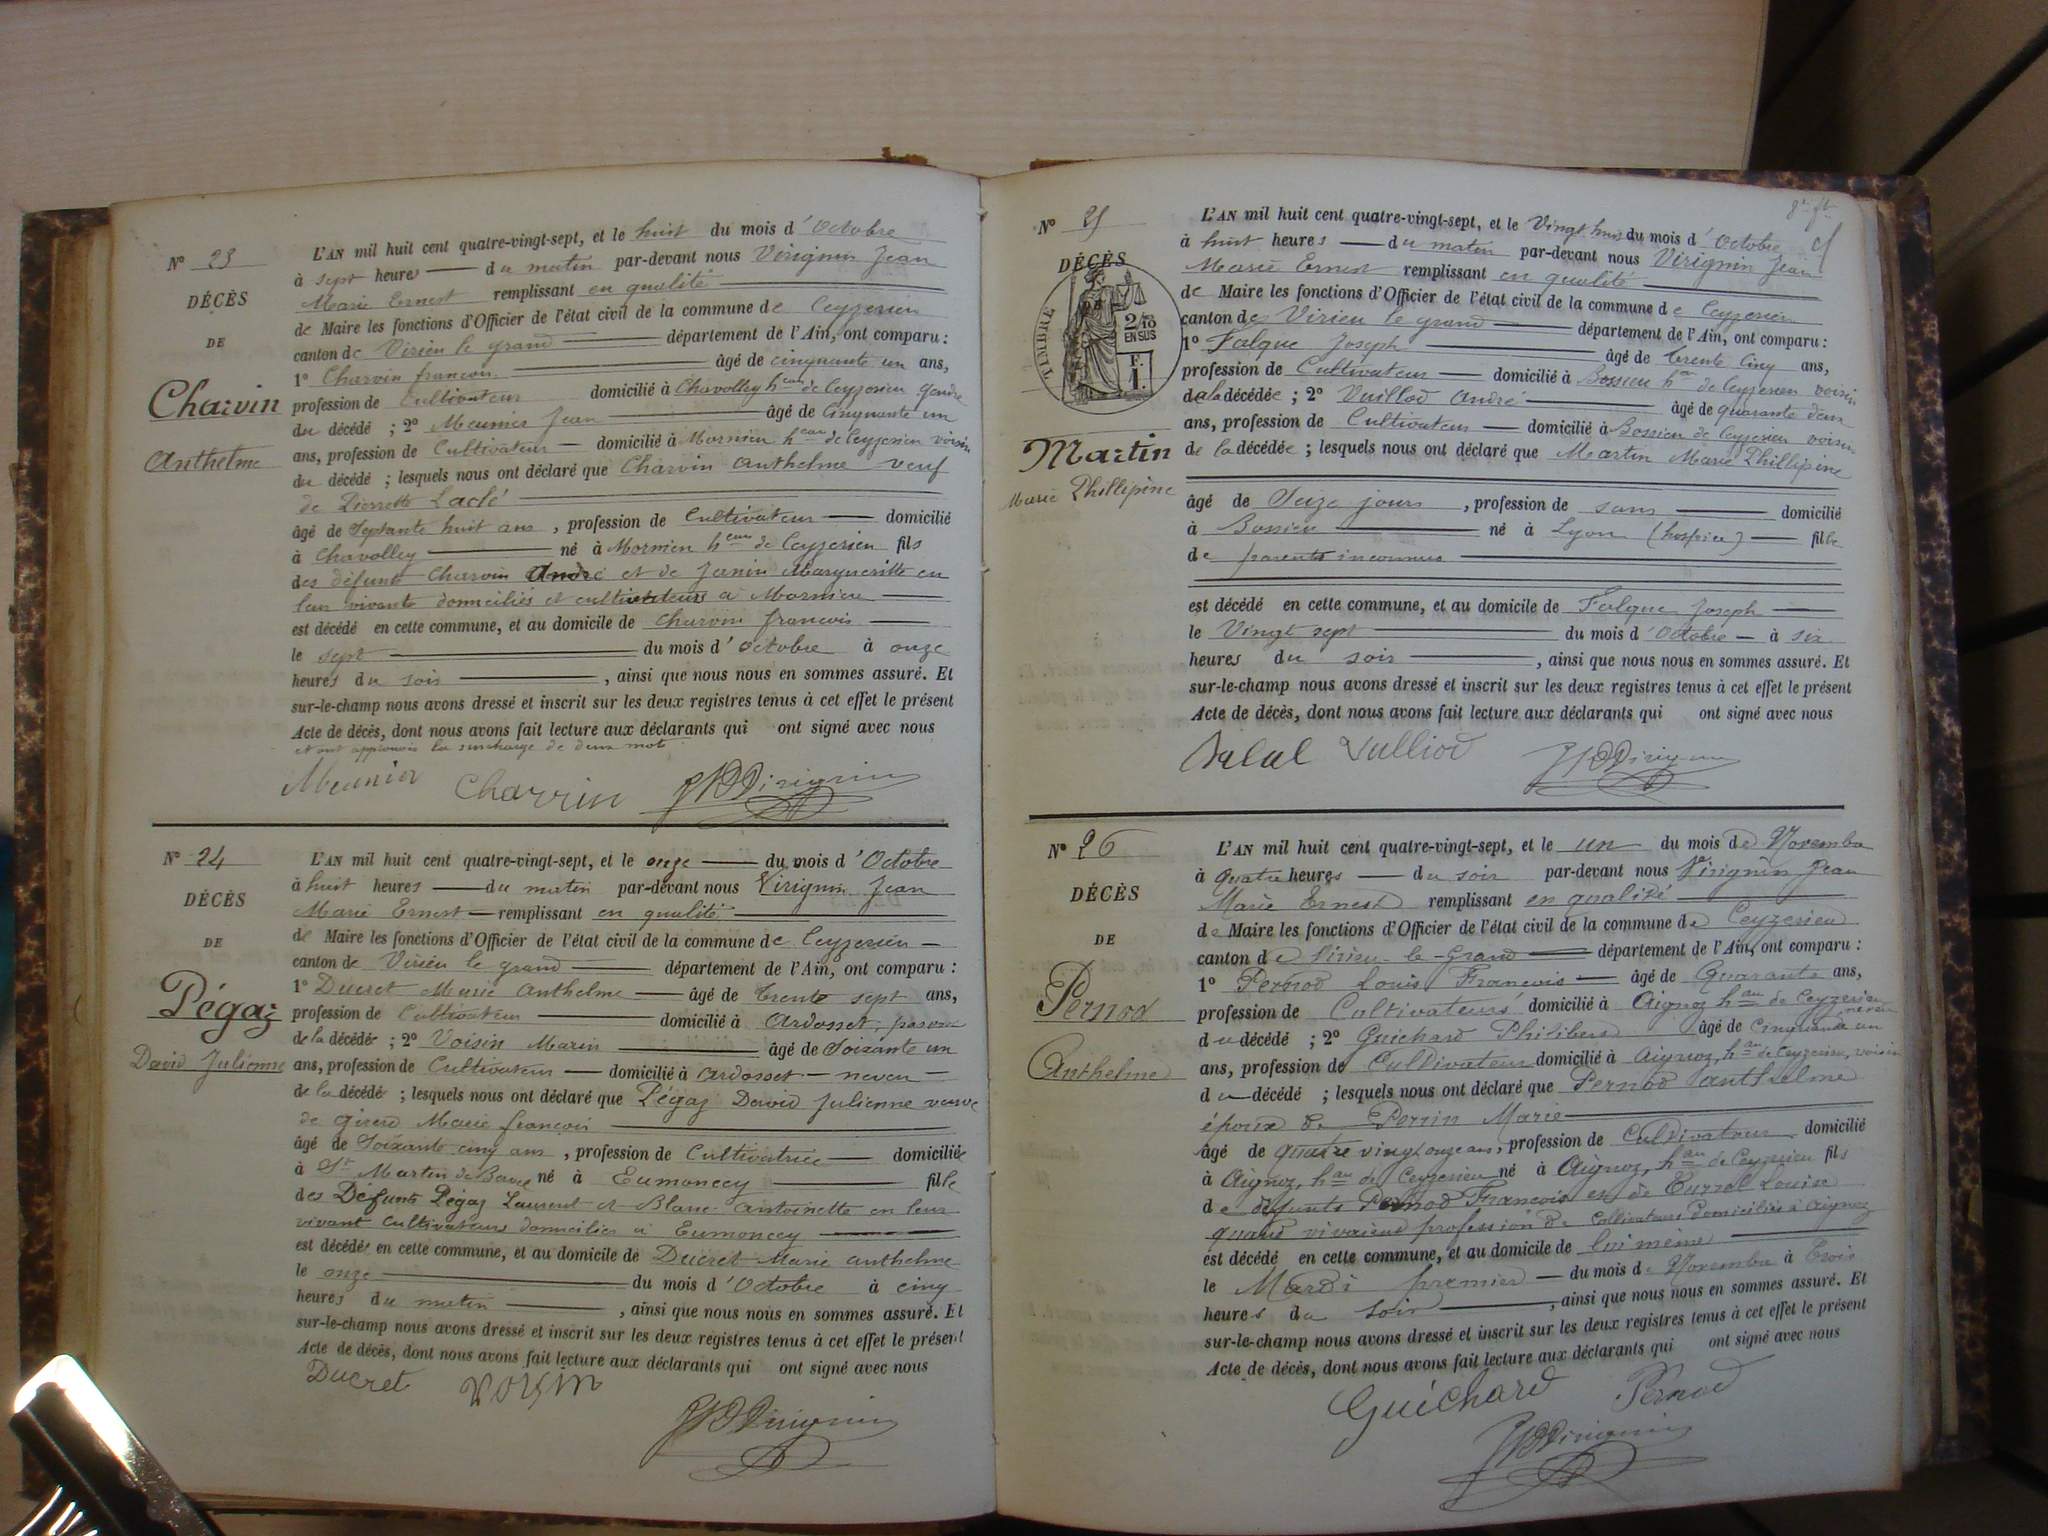 N° 23
DÉCÈS
DE
Charvin
Anthelme
L'AN mil huit cent quatre-vingt-sept, et le huit du mois d'Octobre
à sept heures du matin par-devant nous Virignin Jean
Marie Ernest remplissant en qualité
de Maire les fonctions d'Officier de l'état civil de la commune de Ceyzerieu
canton de Virieu le grand département de l'Ain, ont comparu :
1° Charvin françois âgé de cinquante un ans,
profession de Cultivateur domicilié à Chavolley h^eau de Ceyzerieu gendre
du décédé ; 2° Meunier Jean âgé de Cinquante un
ans, profession de Cultivateur domicilié à Mornieu h^eau de Ceyzerieu voisin
du décédé ; lesquels nous ont déclaré que Charvin Anthelme veuf
de Pierrette Laclé
âgé de Septante huit ans, profession de Cultivateur domicilié
à Chavolley né à Mornieu h^eau de Ceyzerieu fils
des défunts Charvin André et de Janin Margueritte en
leur vivants domiciliés et cultivateurs à Mornieu
est décédé en cette commune, et au domicile de Charvin francois
le sept du mois d'Octobre à onze
heures du soir, ainsi que nous nous en sommes assuré. Et
sur-le-champ nous avons dressé et inscrit sur les deux registres tenus à cet effet le présent
Acte de décès, dont nous avons fait lecture aux déclarants qui ont signé avec nous
et ont approuvés la surcharge de deux mots
Meunier Charvin Virignin
N° 24
DÉCÈS
DE
Pégaz
David Julienne
L'AN mil huit cent quatre-vingt-sept, et le onze du mois d'Octobre
à huit heures du matin par-devant nous Virignin Jean
Marie Ernest remplissant en qualité
de Maire les fonctions d'Officier de l'état civil de la commune de Ceyzerieu
canton de Virieu le grand département de l'Ain, ont comparu :
1° Ducret Marie Anthelme âgé de trente sept ans,
profession de Cultivateur domicilié à Ardosset,
de la décédée ; 2° Voisin Marin âgé de Soixante un
ans, profession de Cultivateur domicilié à Ardosset neveu
de la décédée ; lesquels nous ont déclaré que Pégaz David Julienne veuve
de Girerd Marie françois
âgé de Soixante cinq ans, profession de Cultivatrice domiciliée
à S^t Martin de Bavel né à Eumoncey fille
des Défunts Pégaz Laurent et Blanc Antoinette en leur
vivant cultivateurs domiciliés à Eumoncey
est décédée en cette commune, et au domicile de Ducret Marie Anthelme
le onze du mois d'Octobre à cinq
heures du matin, ainsi que nous nous en sommes assuré. Et
sur-le-champ nous avons dressé et inscrit sur les deux registres tenus à cet effet le présent
Acte de décès, dont nous avons fait lecture aux déclarants qui ont signé avec nous
Ducret Voisin
Virignin
N° 25
DÉCÈS
DE
TIMBRE
2/10
EN SUS
F.
1.
Martin
Marie Phillipine
L'AN mil huit cent quatre-vingt-sept, et le Vingt huit du mois d'Octobre
à huit heures du matin par-devant nous Virignin Jean
Marie Ernest remplissant en qualité
de Maire les fonctions d'Officier de l'état civil de la commune de Ceyzerieu
canton de Virieu le grand département de l'Ain, ont comparu :
1° Falque Joseph âgé de trente Cinq ans,
profession de Cultivateur domicilié à Bossieu h^au de Ceyzerieu voisin
de la décédée ; 2° Vuillod André âgé de quarante deux
ans, profession de Cultivateur domicilié à Bossieu de Ceyzerieu voisin
de la décédée ; lesquels nous ont déclaré que Martin Marie Phillipine
âgé de Seize jours, profession de sans domicilié
à Bossieu né à Lyon (hospice) fille
de parents inconnus
est décédé en cette commune, et au domicile de Falque Joseph
le Vingt sept du mois d'Octobre à six
heures du soir, ainsi que nous nous en sommes assuré. Et
sur-le-champ nous avons dressé et inscrit sur les deux registres tenus à cet effet le présent
Acte de décès, dont nous avons fait lecture aux déclarants qui ont signé avec nous
Vulliod Virignin
N° 26
DÉCÈS
DE
Pernod
Anthelme
L'AN mil huit cent quatre-vingt-sept, et le un du mois de Novembre
à quatre heures du soir par-devant nous Virignin Jean
Marie Ernest remplissant en qualité
de Maire les fonctions d'Officier de l'état civil de la commune de Ceyzerieu
canton de Virieu-le-Grand département de l'Ain, ont comparu :
1° Pernod Louis François âgé de Quarante ans,
profession de Cultivateur domicilié à Aignoz h^au de Ceyzerieu neveu
du décédé ; 2° Guichard Philibert âgé de Cinquante un
ans, profession de Cultivateur domicilié à Aignoz, h^au de Ceyzerieu, voisin
du décédé ; lesquels nous ont déclaré que Pernod Anthelme
époux de Perrin Marie
âgé de quatre vingt onze ans, profession de Cultivateur domicilié
à Aignoz, h^au de Ceyzerieu né à Aignoz, h^au de Ceyzerieu fils
de défunts Pernod François et de Curral Louise
quand vivaient profession de Cultivateurs domiciliés à Aignoz
est décédé en cette commune, et au domicile de lui même
le Mardi premier du mois de Novembre à trois
heures du soir, ainsi que nous nous en sommes assuré. Et
sur-le-champ nous avons dressé et inscrit sur les deux registres tenus à cet effet le présent
Acte de décès, dont nous avons fait lecture aux déclarants qui ont signé avec nous
Guichard Pernod
Virignin